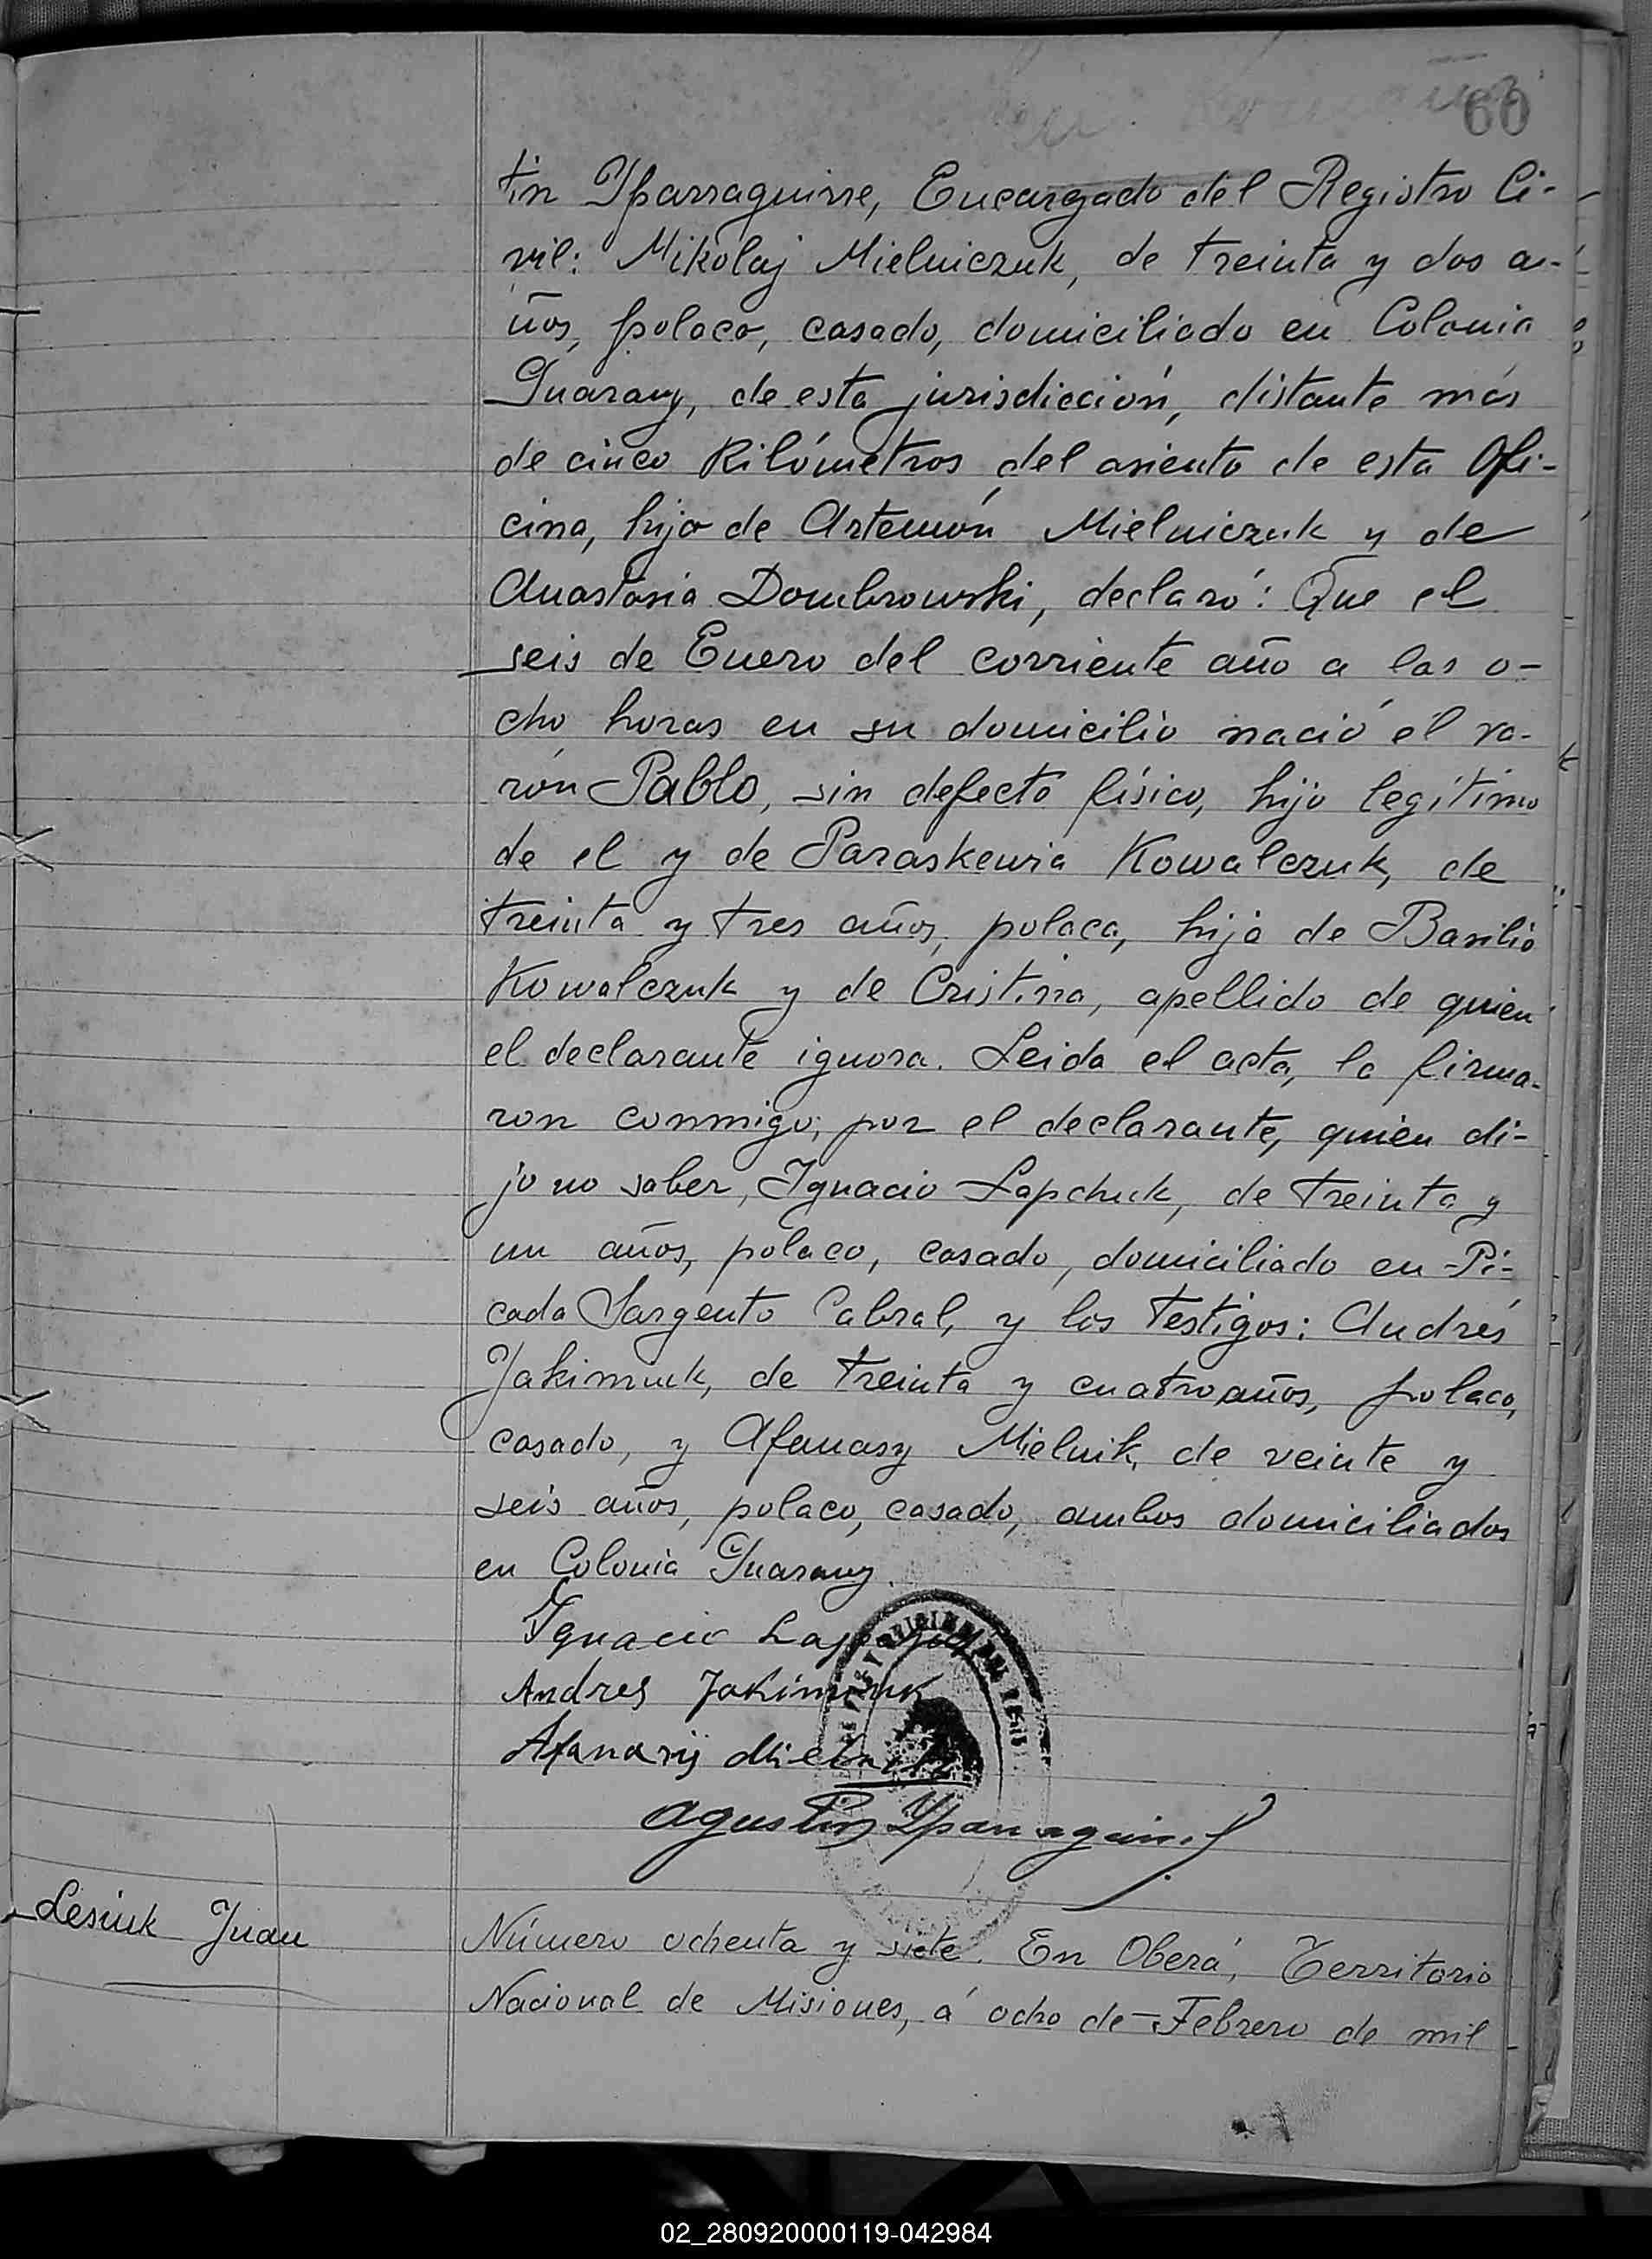 60
tin Yparraguirre, Encargado del Registro Ci-
vil: Mikolaj Mielniczuk, de treinta y dos a-
ños, polaco, casado, domiciliado en Colonia
Guarany, de esta jurisdicción, distante más
de cinco kilómetros del asiento de esta Ofi-
cina, hijo de Artemón Mielniczuk y de
Anastasia Dombrowski, declaró: Que el
seis de Enero del corriente año a las o-
cho horas en su domicilio nació el va-
rón Pablo, sin defecto físico, hijo legítimo
de el y de Paraskewia Kowalczuk, de
treinta y tres años, polaca, hija de Basilio
Kowalczuk y de Cristina, apellido de quien
el declarante ignora. Leida el acta, la firma-
ron conmigo; por el declarante, quien di-
jo no saber, Ignacio Lapchuk, de treinta y
un años, polaco, casado, domiciliado en Pi-
cada Sargento Cabral, y los testigos: Andrés
Jakimuk, de treinta y cuatro años, polaco,
casado, y Afanasy Mielnik, de veinte y
seis años, polaco, casado, ambos domiciliados
en Colonia Guarany.
Ignacio
Andres
Afanasij Mielnik
Agustin Yparraguirre
Lesiuk Juan
Número ochenta y siete. En Oberá, Territorio
Nacional de Misiones, á ocho de Febrero de mil
02_280920000119-042984